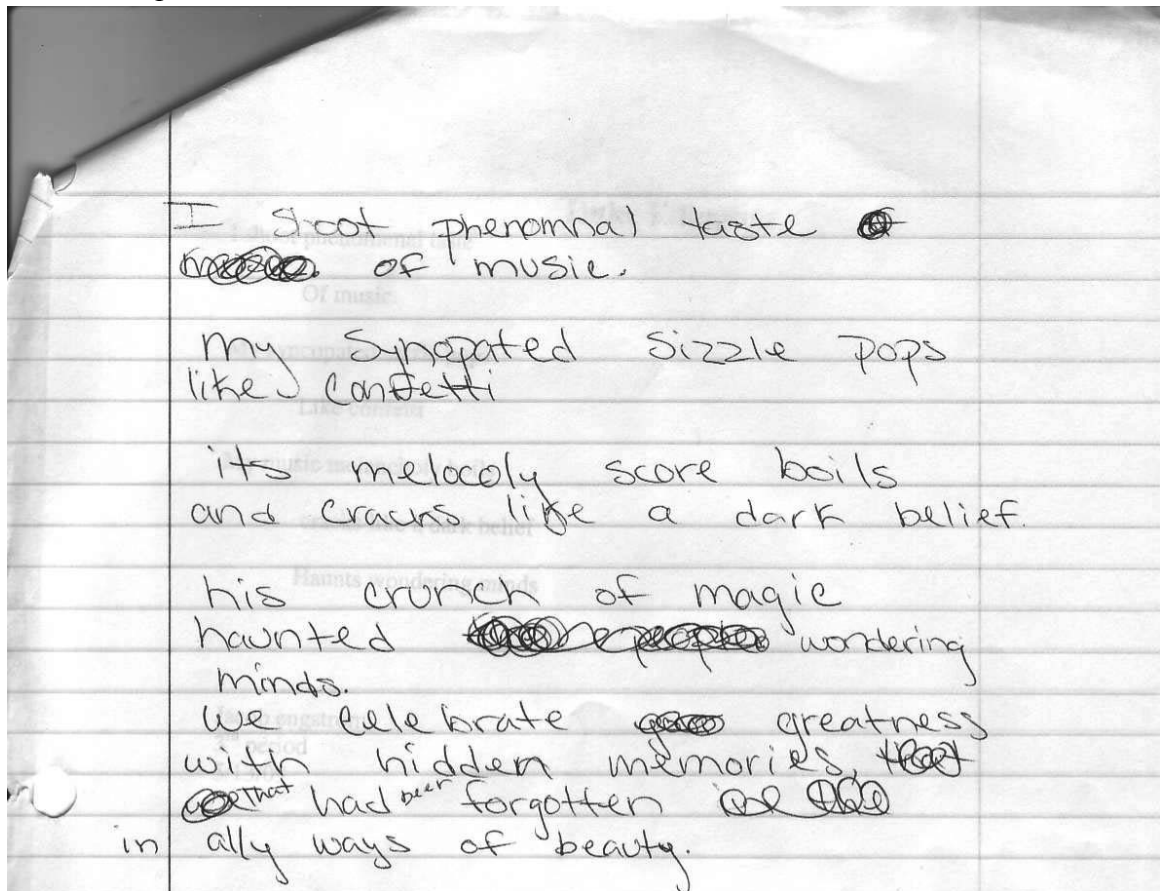 I shoot phenomnal taste
of music.
my synopated sizzle pops
like confetti
its melocoly score boils
and cracks like a dark belief.
his crunch of magic
haunted wondering
minds.
we celebrate greatness
with hidden memories,
that had been forgotten
in ally ways of beauty.
Of music.
Like confetti
Haunts wondering minds